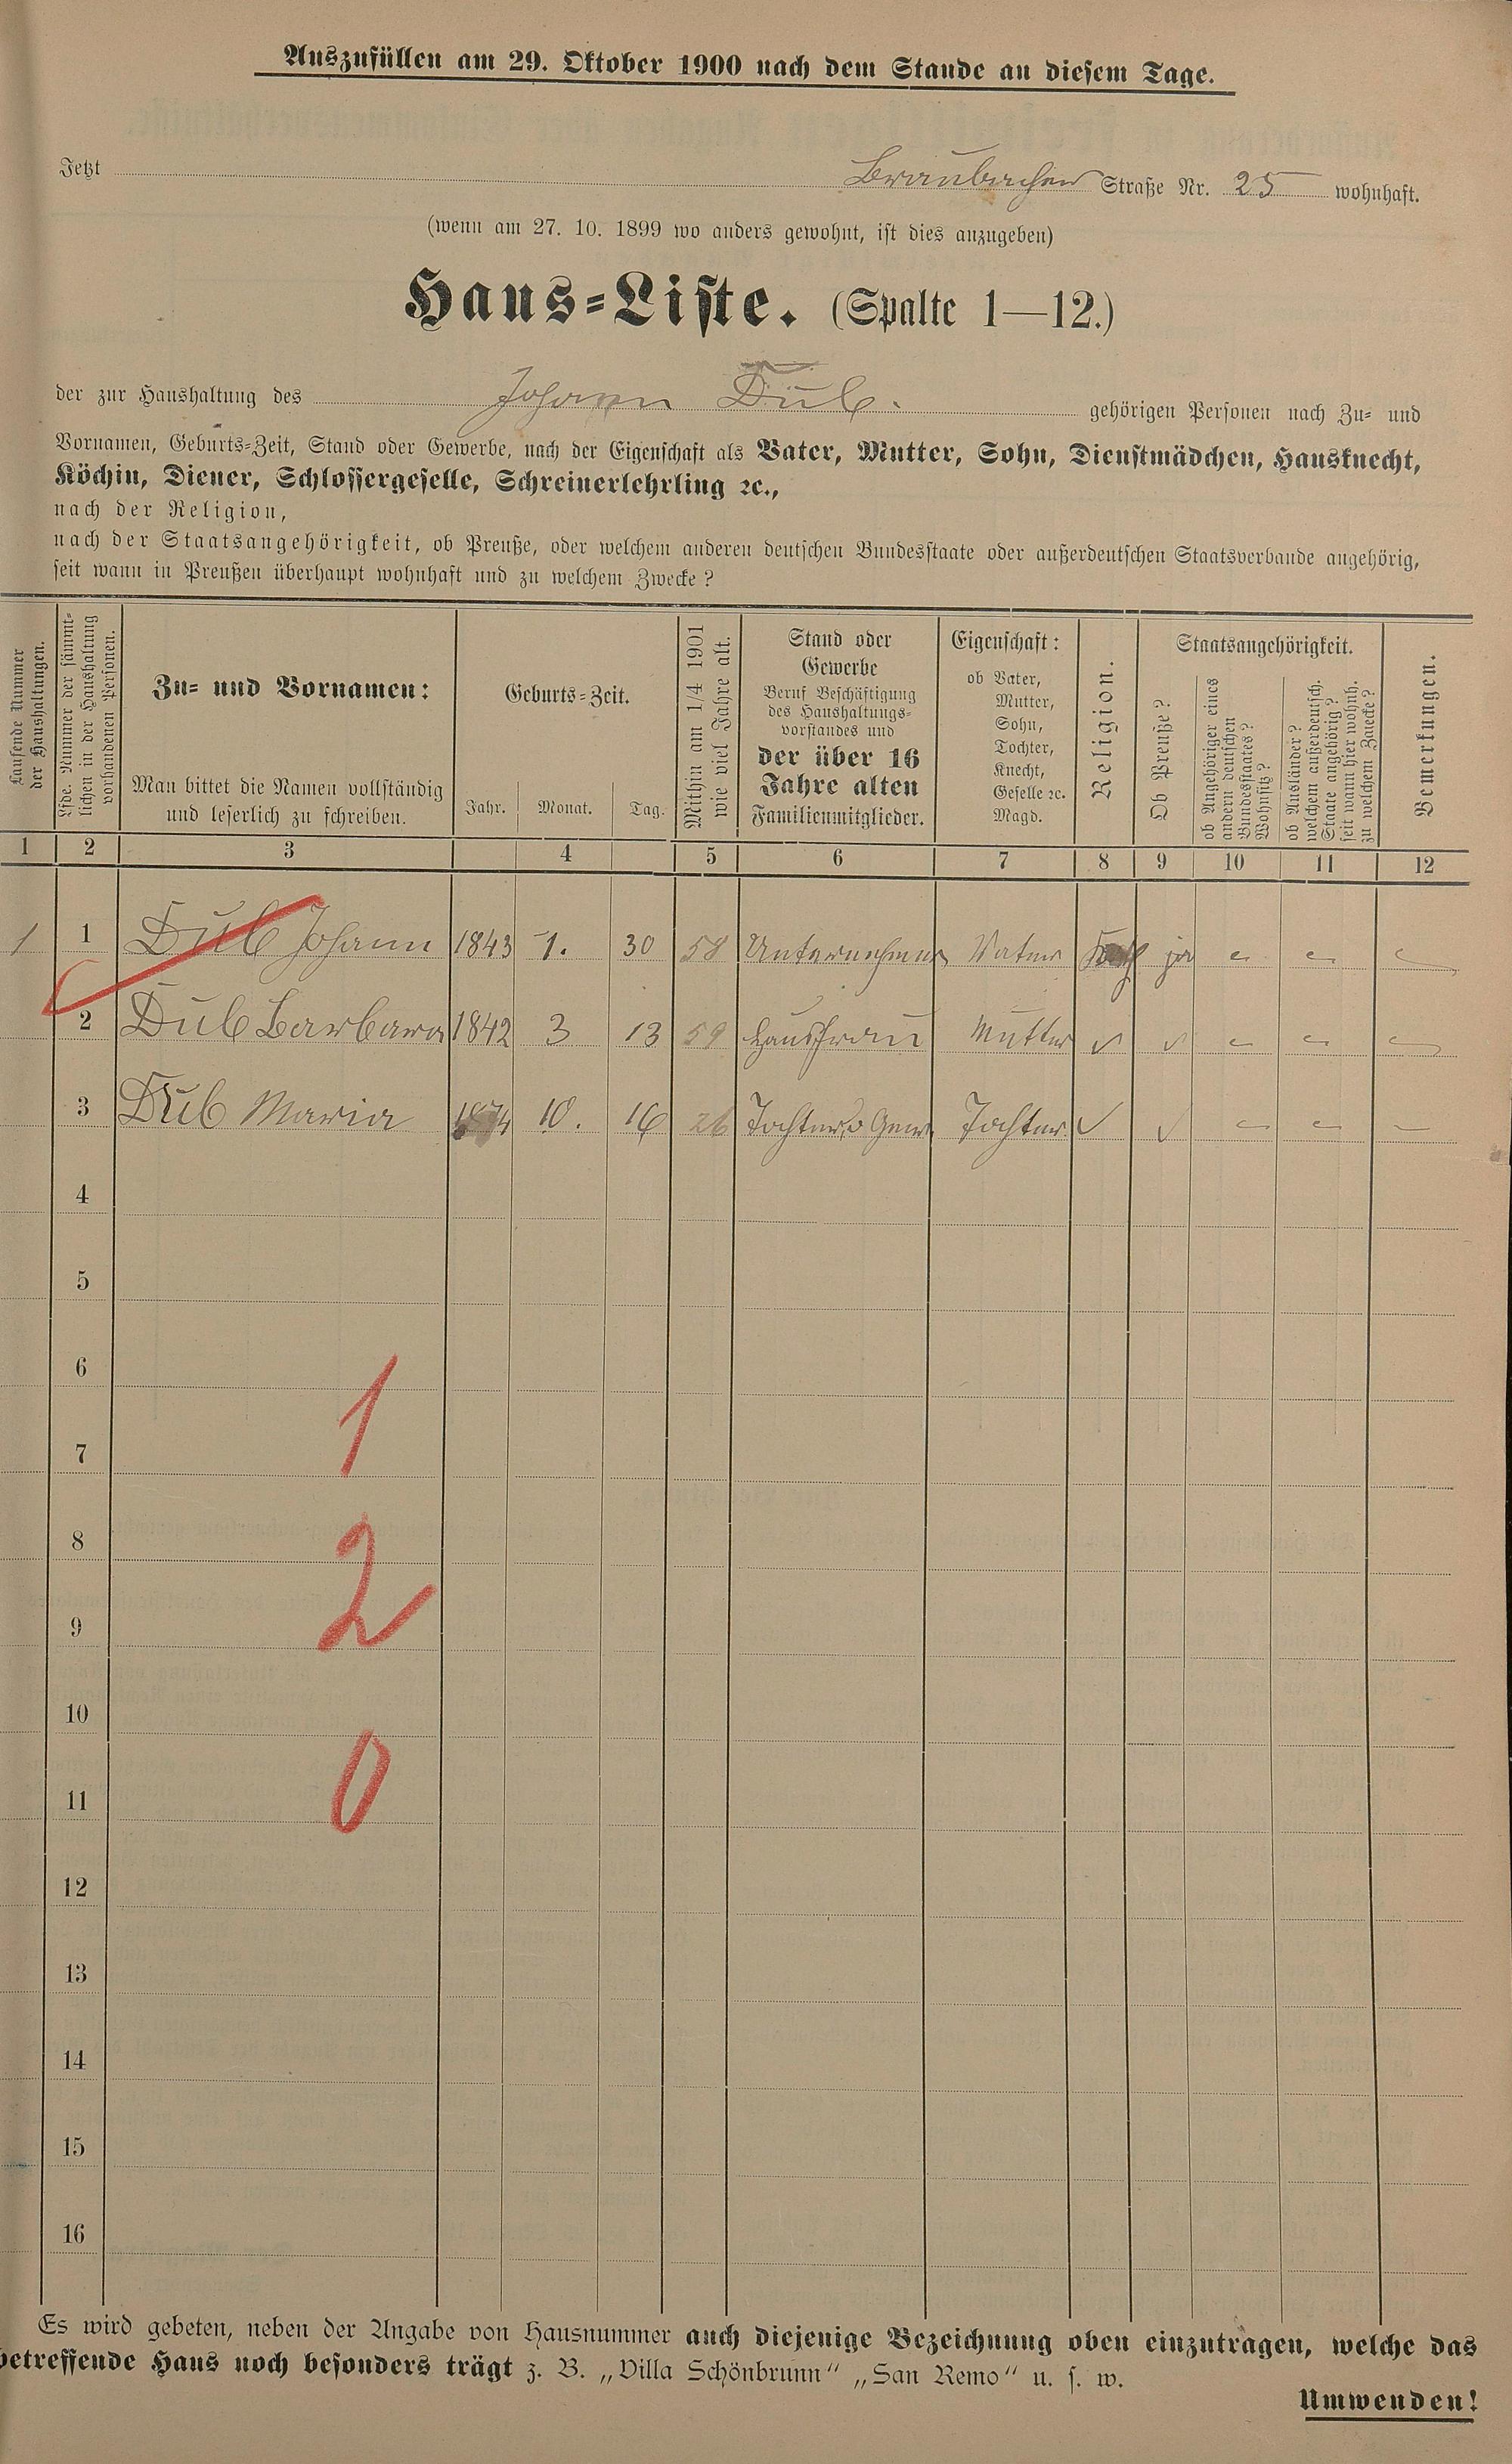 Auszufüllen am 29. Oktober 1900 nach dem Stande an diesem Tage.
Jetzt Braubacher Straße Nr. 25 wohnhaft.
(wenn am 27. 10. 1899 wo anders gewohnt, ist dies anzugeben)
Haus-Liste. (Spalte 1—12.)
der zur Haushaltung des Johann Dül. gehörigen Personen nach Zu- und
Vornamen, Geburts-Zeit, Stand oder Gewerbe, nach der Eigenschaft als Vater, Mutter, Sohn, Dienstmädchen, Hausknecht,
Köchin, Diener, Schlossergeselle, Schreinerlehrling ꝛc.,
nach der Religion,
nach der Staatsangehörigkeit, ob Preuße, oder welchem anderen deutschen Bundesstaate oder außerdeutschen Staatsverbande angehörig,
seit wann in Preußen überhaupt wohnhaft und zu welchem Zwecke?
Laufende Nummer
der Haushaltungen.
Lfde. Nummer der sämmt-
lichen in der Haushaltung
vorhandenen Personen.
Zu- und Vornamen:
Man bittet die Namen vollständig
und leserlich zu schreiben.
Geburts-Zeit.
Jahr. Monat. Tag.
Mithin am 1/4 1901
wie viel Jahre alt.
Stand oder
Gewerbe
Beruf Beschäftigung
des Haushaltungs-
vorstandes und
der über 16
Jahre alten
Familienmitglieder.
Eigenschaft:
ob Vater,
Mutter,
Sohn,
Tochter,
Knecht,
Geselle ꝛc.
Magd.
Religion.
Staatsangehörigkeit.
Ob Preuße?
ob Angehöriger eines
andern deutschen
Bundesstaates?
Wohnsitz?
ob Ausländer?
welchem außerdeutsch.
Staate angehörig?
seit wann hier wohnh.
zu welchem Zwecke?
Bemerkungen.
1 2 3 4 5 6 7 8 9 10 11 12
1 1 Dul Johann 1843 1. 30 58 Unternehmer Vater Kath ja
2 Dul Barbara 1842 3 13 59 Hausfrau Mutter
3 Dul Maria 1874 10. 16 26 Tochter o Gew. Tochter
4
5
6
1
7
8
2
9
10
0
11
12
13
14
15
16
Es wird gebeten, neben der Angabe von Hausnummer auch diejenige Bezeichnung oben einzutragen, welche das
betreffende Haus noch besonders trägt z. B. „Villa Schönbrunn“ „San Remo“ u. s. w.
Umwenden!